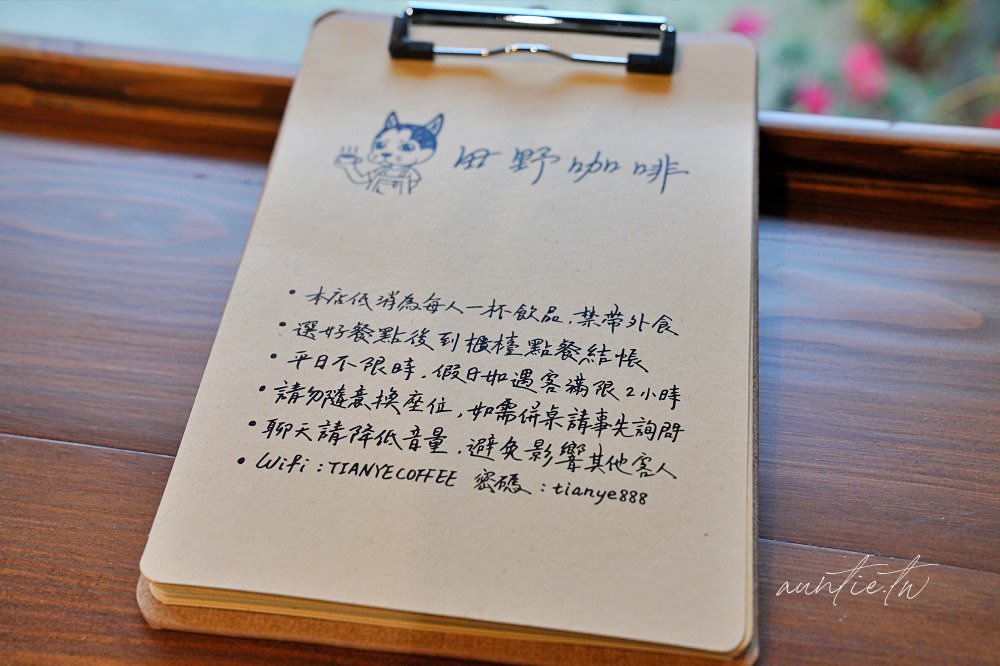 田野咖啡
• 本店低消為每人一杯飲品,禁帶外食
• 選好餐點後到櫃檯點餐結帳
• 平日不限時,假日如遇客滿限2小時
• 請勿隨意換座位,如需併桌請事先詢問
• 聊天請降低音量,避免影響其他客人
• Wifi:TIANYECOFFEE 密碼:tianye888
auntie.tw